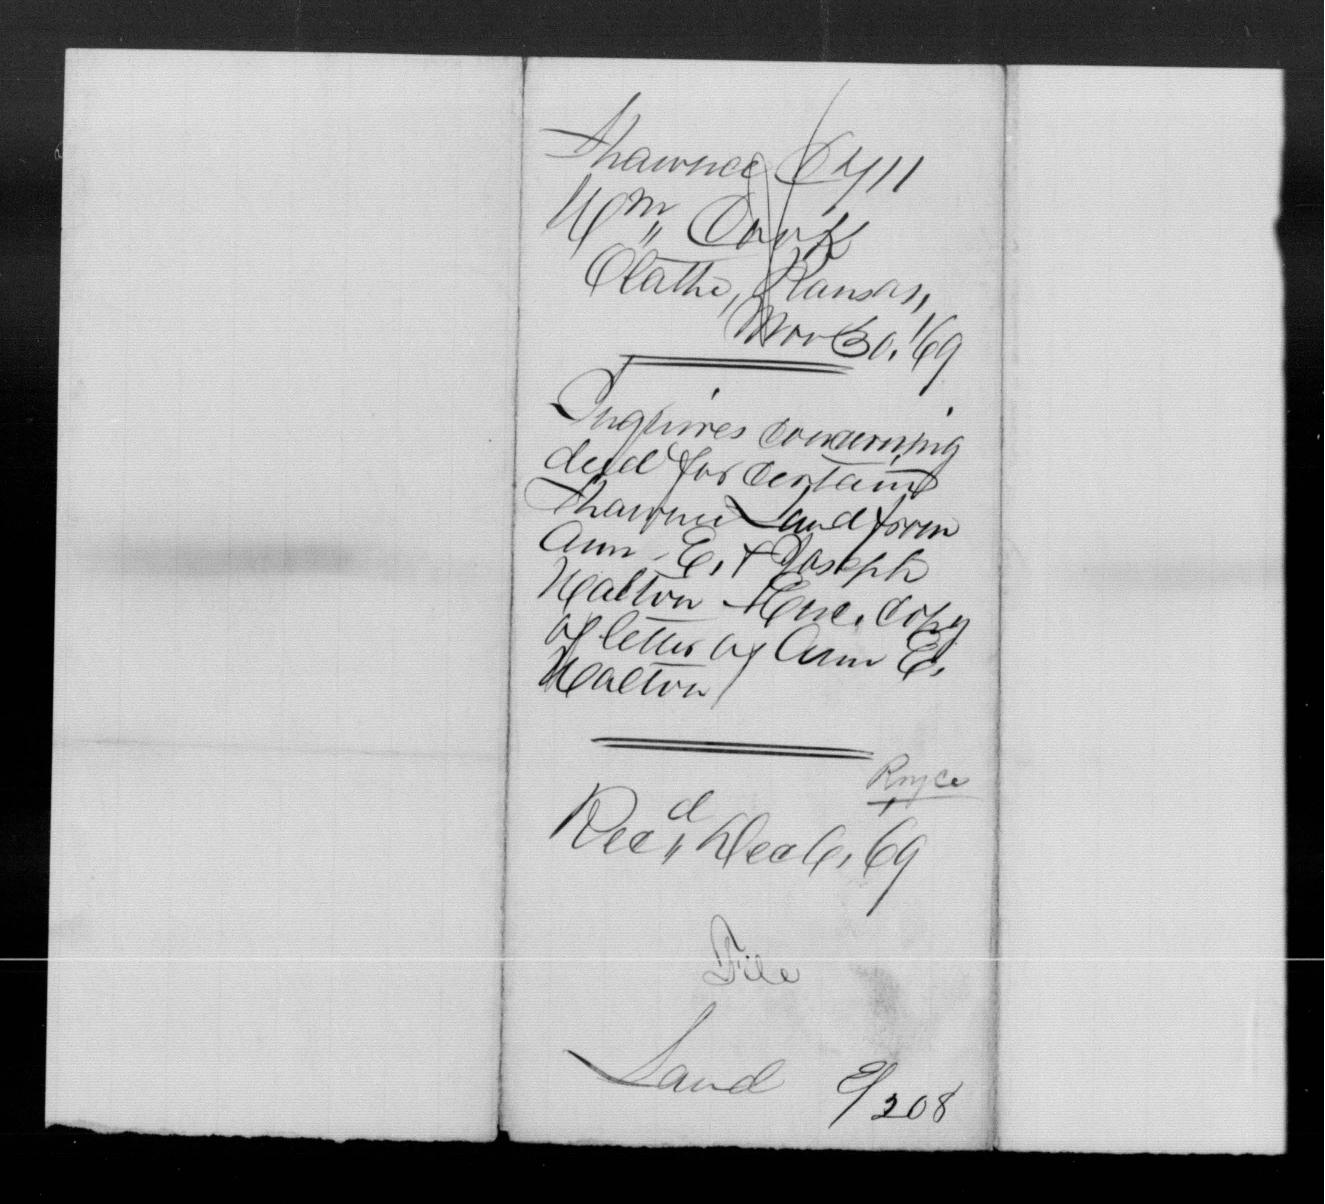 Shawnee C 711
Wm Cook
Olathe, Kansas,
Nov 30, '69
Inquires concerning
deed for certain
Shawnee Land from
Ann E. & Joseph
Walton - Enc. copy
of letter of Ann E.
Walton
Royce
Recd Dec 6, 69
File
Land
9/208